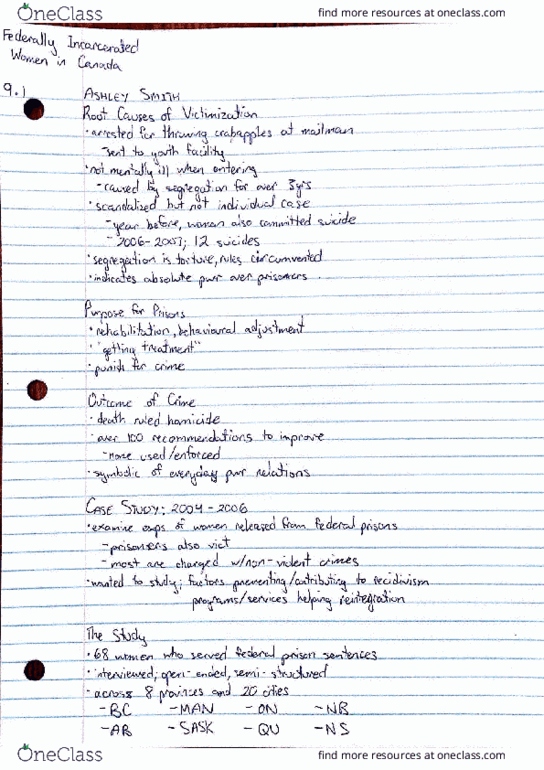 OneClass
find more resources at oneclass.com
Federally Incarcerated
Women in Canada
9.)
ASHLEY SMITH
Root Causes of Victimization
• arrested for throwing crabapples at mailman
- sent to youth facility
• not mentally ill when entering
- caused by segregation for over 3yrs
• scandalized but not individual case
- year before, women also committed suicide
- 2006-2007; 12 suicides
• segregation is torture, rules circumvented
• indicates absolute pwr over prisoners
Purpose for Prisons
• rehabilitation, behavioural adjustment
• "getting treatment"
• punish for crime
Outcome of Crime
• death ruled homicide
• over 100 recommendations to improve
- none used/enforced
• symbolic of everyday pwr relations
CASE STUDY: 2004-2006
• examine exps of women released from federal prisons
- prisoners also vict
- most are charged w/non-violent crimes
• wanted to study; factors preventing/contributing to recidivism
programs/services helping reintegration
The Study
• 68 women who served federal prison sentences
• interviewed; open-ended, semi-structured
• across 8 provinces and 20 cities
-BC -MAN -ON -NB
-AB -SASK -QU -NS
OneClass
find more resources at oneclass.com